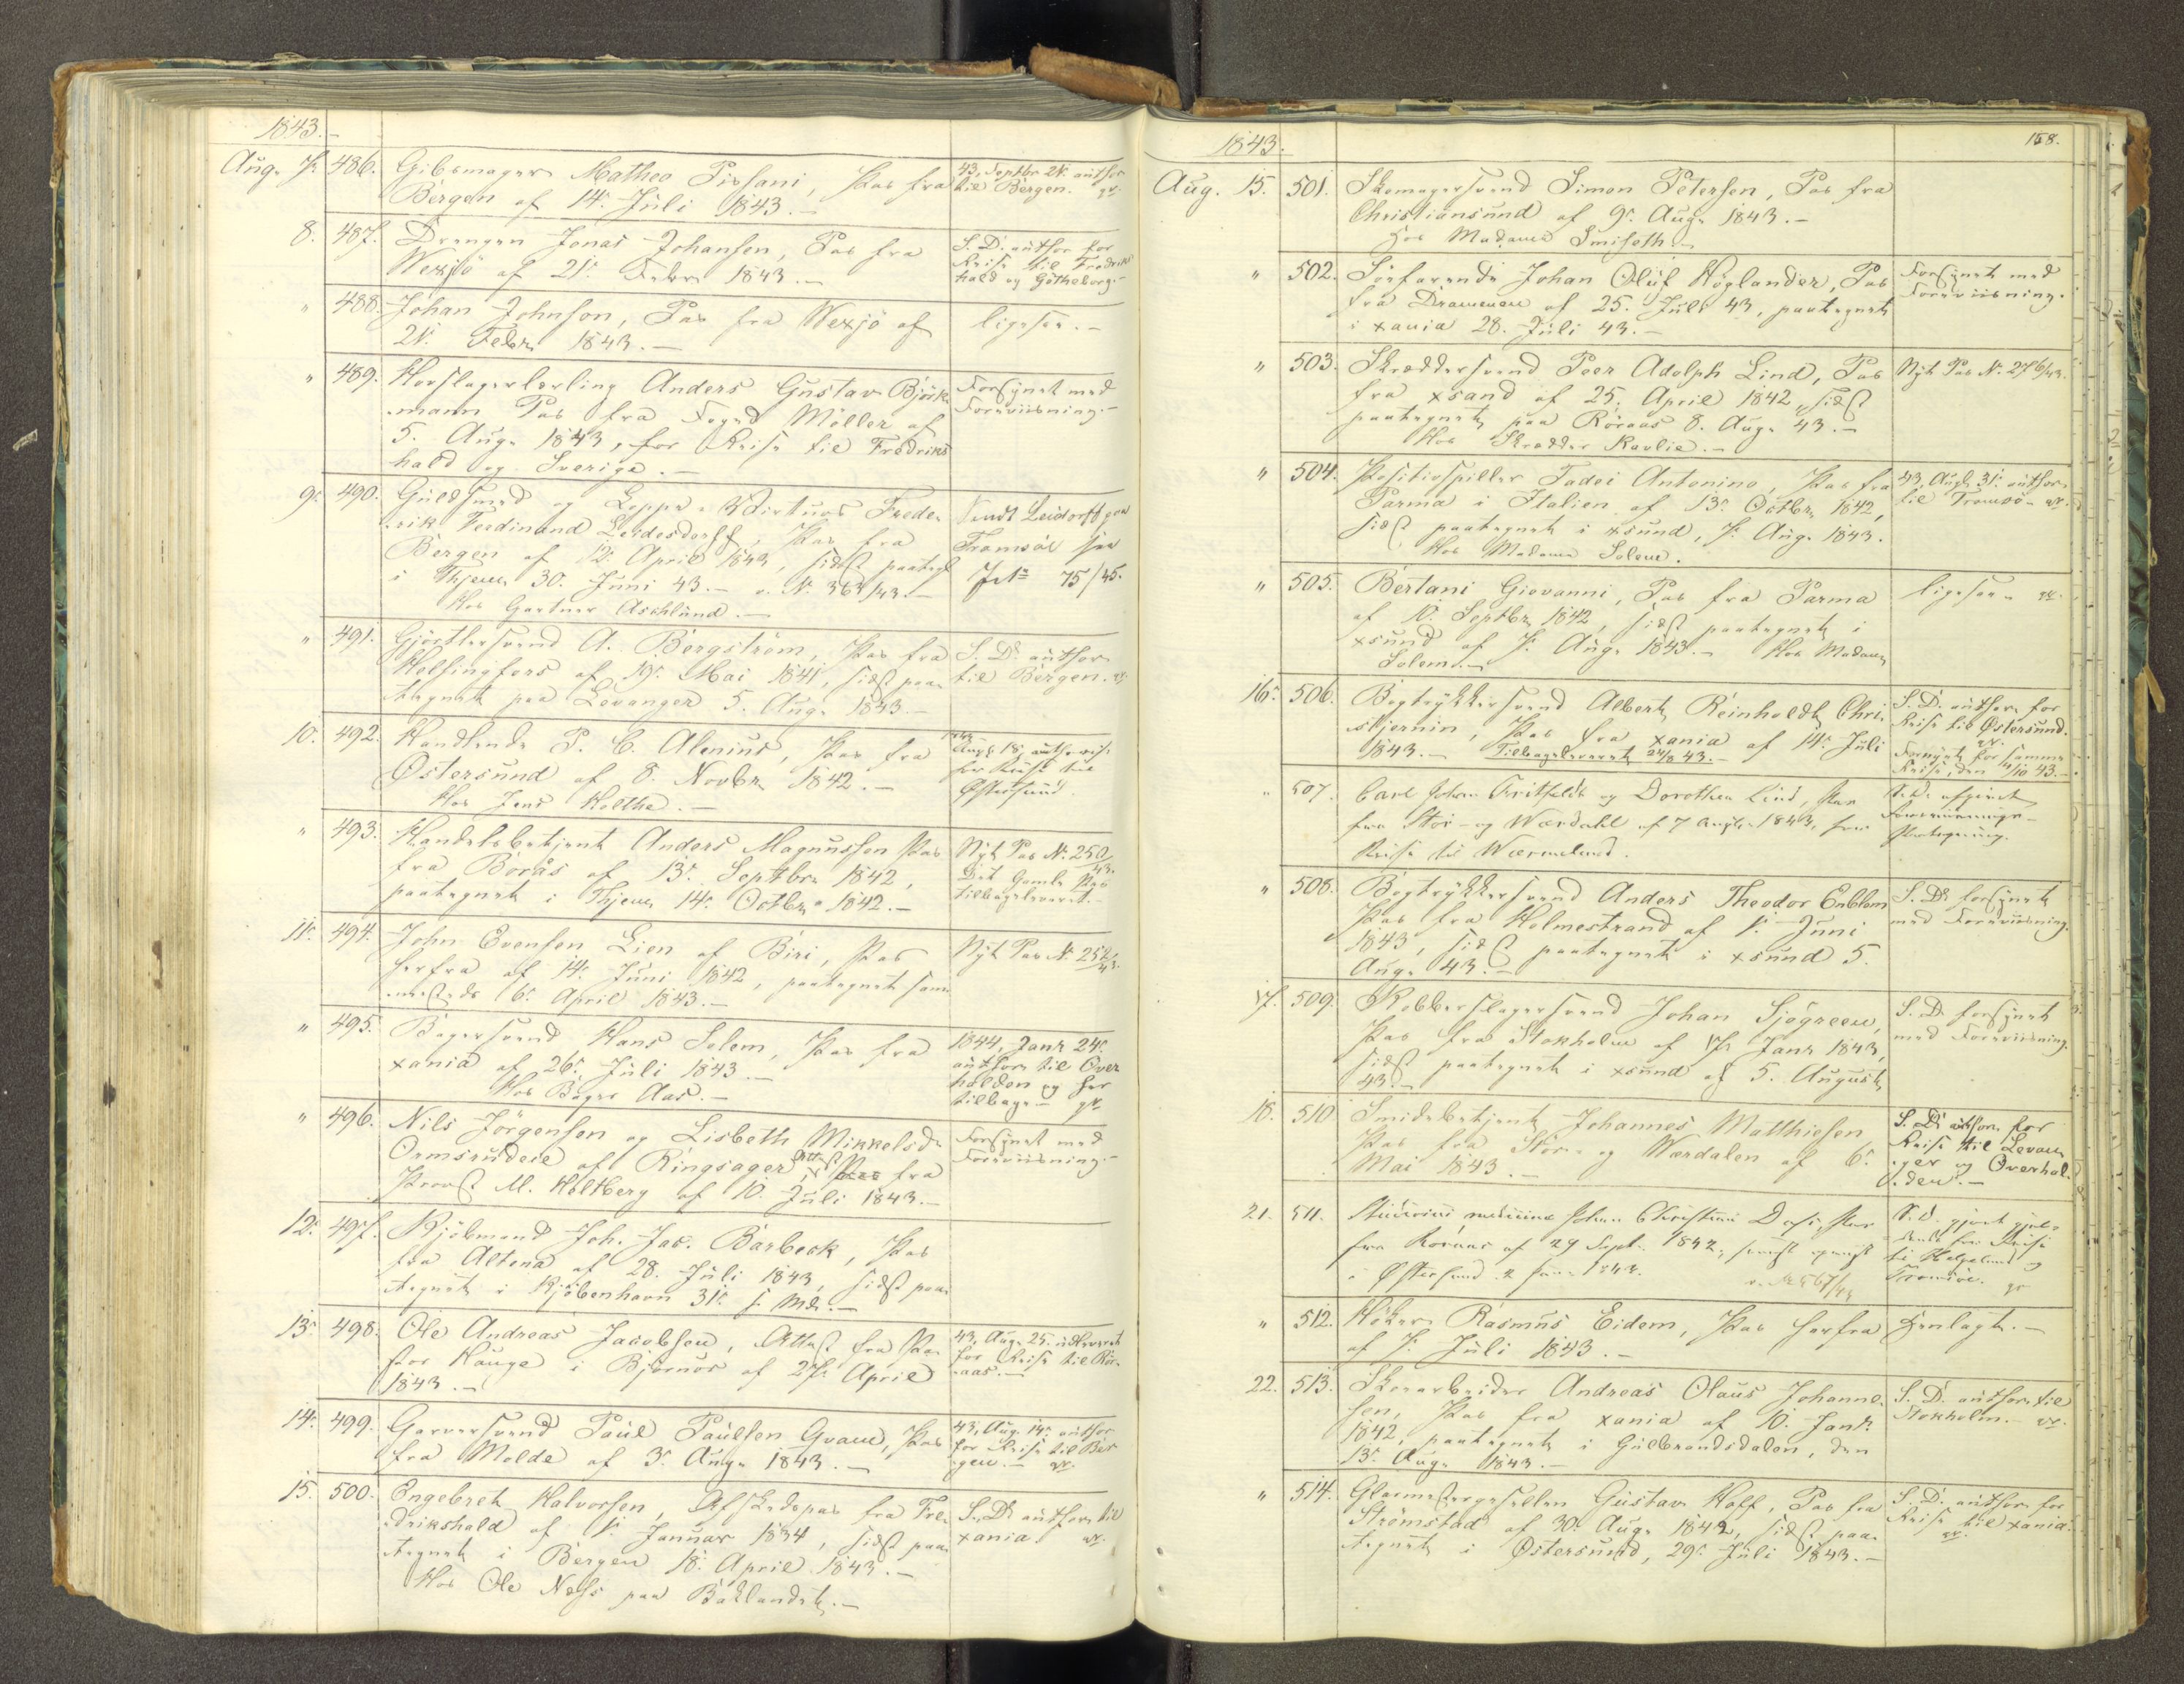 1843.-
Aug. 7. 486. Gibsmager Matheo Pissani, Pas fra
Bergen af 14. Juli 1843.-
43, Septbr 21. author
til Bergen.
8. 487. Drengen Jonas Johansen, Pas fra
Wexjö af 21. Febr. 1843.-
S. D. author for
Reise til Fredriks
hald og Götheborg.-
" 488. Johan Johnson, Pas fra Wexjö af
21. Febr. 1843.-
ligesaa.-
" 489. Hovslagerlærling Anders Gustav Björk-
mann Pas fra Foged Möller af
5. Aug. 1843, for Reise til Fredriks
hald og Sverige.-
Forsynet med
Foreviisning.-
9. 490. Guldsmed og Frede-
rik Ferdinand Leidesdorff, Pas fra
Bergen af 12. April 1843, sidst paategn
i Thjem 30. Juni 43.- v. N. 362/43.-
Hos Gartner Aschlund.-
Sendt Leidorff paa
Tromsöe
75/45.
" 491. Gjörtlersvend A. Bergström, Pas fra
Helsingfors af 19. Mai 1841, sidst paa-
tegnet paa Levanger 5. Aug. 1843.-
S. D. author
til Bergen.
10. 492. Handlende P. C. Alenius, Pas fra
Østersund af 8. Novbr. 1842.-
Hos Jens Holthe.-
Augt 18. authoris.
for Reise til
Østersund.
" 493. Handelsbetjent Anders Magnussen Pas
fra Borås af 13. Septbr. 1842,
paategnet i Thjem 14. Octbr. 1842.-
Nyt Pas N. 250/43.
Det Gamle Pas
tilbageleveret.-
11. 494. John Evensen Lien af Biri, Pas
herfra af 14. Juni 1842, paategnet sam-
mesteds 6. April 1843.-
Nyt Pas N. 252/43.
" 495. Bagersvend Hans Solem, Pas fra
xania af 26. Juli 1843.-
Hos Bager Aas.-
1844, Janr 24.
author til Over
halden og her
tilbage.-
" 496. Nils Jörgensen og Lisbeth Mikkelsdr
Ormsrudeie af Ringsager, Attest fra
Provst M. Holtberg af 10. Juli 1843.-
Forsynet med
Foreviisning.-
12. 497. Kjöbmand Joh. Jac. Barbeck, Pas
fra Altona af 28. Juli 1843, sidst paa-
tegnet i Kjöbenhavn 31. s. Md.-
13. 498. Ole Andreas Jacobsen, Attest fra Pa-
stor Hauge i Björnör af 27. April
1843.-
43, Aug. 25. udleveret
for Reise til Rör-
aas.-
14. 499. Garversvend Paul Paulsen Qvam, Pas
fra Molde af 3. Aug. 1843.-
43, Aug. 14. author
for Reise til Ber
gen.-
15. 500. Engebret Halvorsen, Afskedspas fra Fre-
drikshald af 1. Januar 1834, sidst paa-
tegnet i Bergen 18. April 1843.-
Hos Ole Næss paa Baklandet.-
S. D. author til
xania.
1843.
158.
Aug. 15. 501. Skomagersvend Simon Petersen, Pas fra
Christiansund af 9. Aug. 1843.-
Hos Madame Smiseth.-
" 502. Söefarende Johan Oluf Höglander, Pas
fra Drammen af 25. Juli 43, paategnet
i xania 28. Juli 43.-
Forsynet med
Foreviisning.
" 503. Skræddersvend Peer Adolph Lind, Pas
fra xsand af 25. April 1842, sidst
paategnet paa Röraas 8. Aug. 43.-
Hos Skrædder Ravlie.-
Nyt Pas N. 276/43.
" 504. Positivspiller Tadei Antonino, Pas fra
Parma i Italien af 13. Octbr. 1842,
sidst paategnet i xsund, 7. Aug. 1843.
Hos Madame Solem.
43, Augt. 31. author
til Tromsö.-
" 505. Bertani Giovanni, Pas fra Parma
af 10. Septbr. 1842, sidst paategnet i
xsund af 7. Aug. 1843.- Hos Madame
Solem.-
ligesaa.-
16. 506. Bogtrykkersvend Albert Reinholdt Chri-
stjernin, Pas fra xania af 14. Juli
1843.- Tilbageleveret 24/8 43.-
S. D. author for
Reise til Østersund.
Fornyet for samme
Reise, den 4/10 43.-
" 507. Carl Johan Fritfeldt og Dorothea Lind, Pas
fra Stör- og Wærdahl af 7 Augt. 1843, for
Reise til Wærmeland.
S. D. afgivet
Foreviisnings-
Paategning.
" 508. Bogtrykkersvend Anders Theodor Enblom
Pas fra Holmestrand af 1. Juni
1843, sidst paategnet i xsund 5.
Aug. 43.-
S. D. forsynet
med Foreviisning.
17. 509. Kobberslagersvend Johan Sjögreen,
Pas fra Stokholm af 17. Janr 1843,
sidst paategnet i xsund af 5. August
43.-
S. D. forsynet
med Foreviisning.
18. 510. Smidebetjent Johannes Matthiesen
Pas fra Stör- og Wærdalen af 6.
Mai 1843.-
S. D. author for
Reise til Levan-
ger og Overhal-
den.-
21. 511. Studiosus medicinæ Johan Christian Dass, Pas
fra Roraas af 29 Sept. 1842,
i Østersund 2 1843.
S. D. gjort gjel-
dende for Reise
til Helgeland og
Tromsöe.
" 512. Höker Rasmus Eidem, Pas herfra
af 7. Juli 1843.-
Henlagt.-
22. 513. Skoarbeider Andreas Olaus Johanne-
sen, Pas fra xania af 10. Janr
1842, paategnet i Gulbrandsdalen, den
13. Aug. 1843.-
S. D. author til
Stokholm.-
" 514. Glarmestergesellen Gustav Hoff, Pas fra
Strömstad af 30. Aug. 1842, sidst paa-
tegnet i Østersund, 29. Juli 1843.-
S. D. author for
Reise til xania.